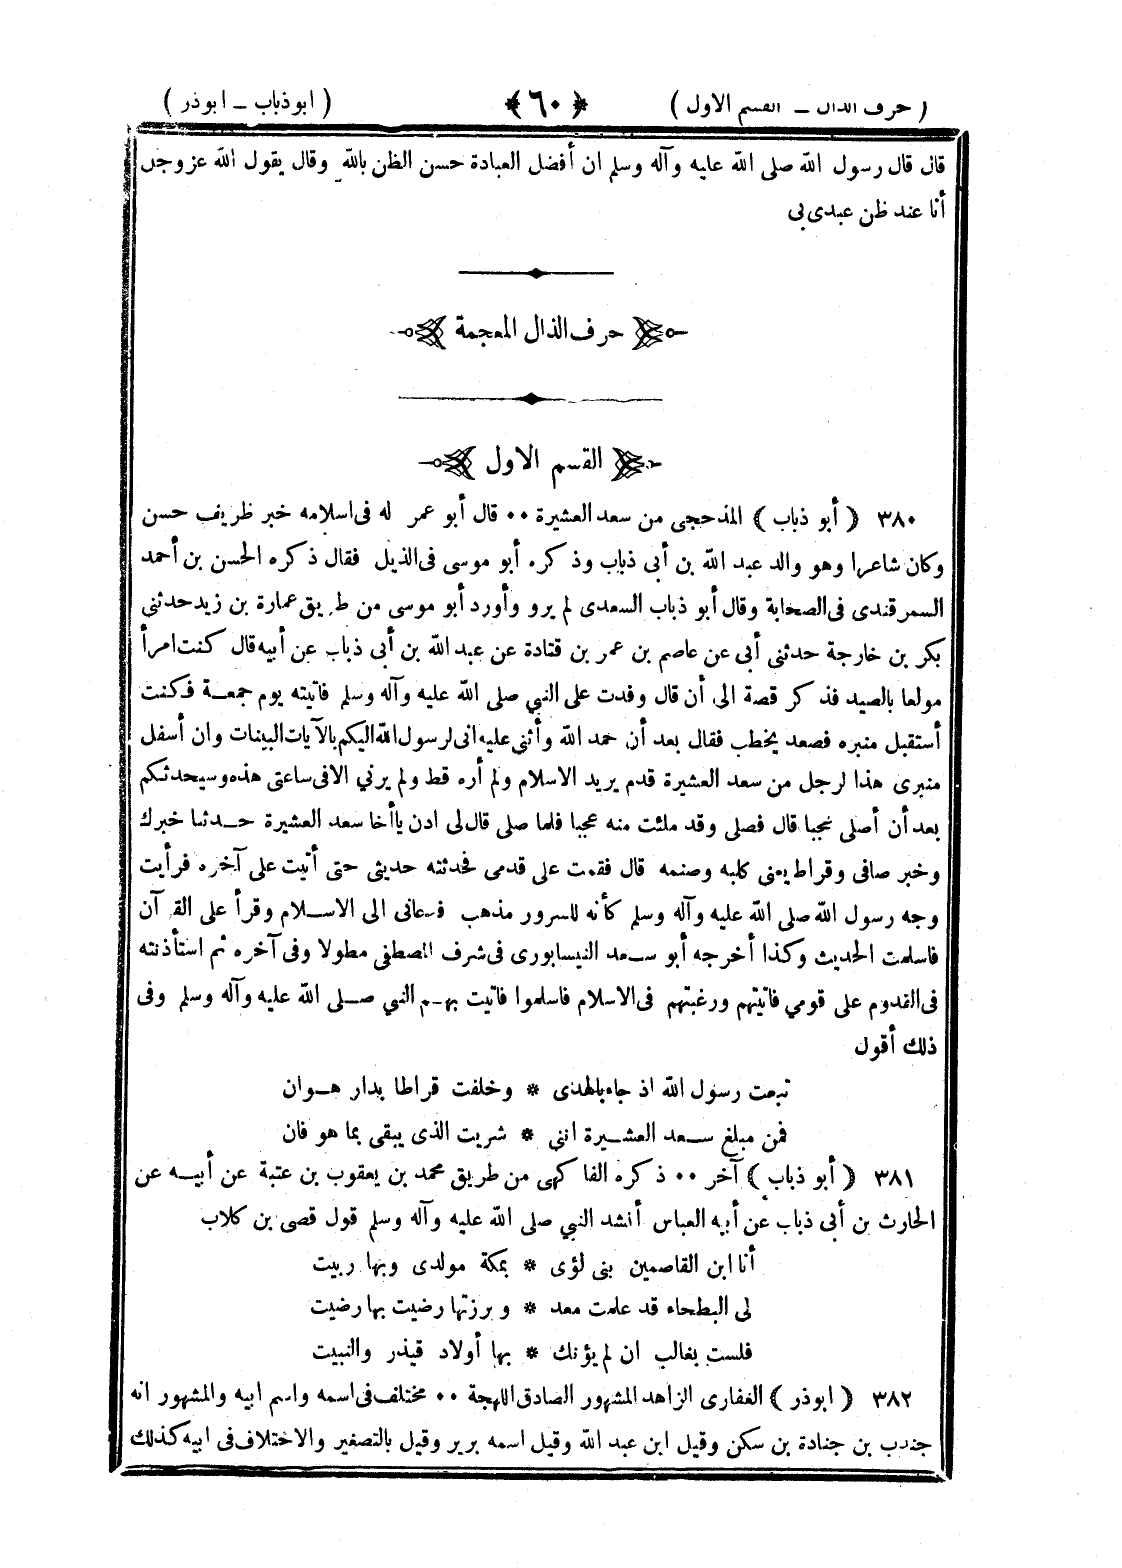 ( حرف الدال – القسم الاول ) ﴿ ٦٠ ﴾ ( ابو ذباب – ابوذر )
قال قال رسول الله صلى الله عليه وآله وسلم ان أفضل العبادة حسن الظن بالله وقال يقول الله عز وجل
أنا عند ظن عبدى بى
حرف الذال المعجمة
القسم الاول
٣٨٠ ( أبو ذباب ) المذحجى من سعد العشيرة ٠٠ قال أبو عمر له فى اسلامه خبر ظريف حسن
وكان شاعرا وهو والد عبد الله بن أبى ذباب وذكره أبو موسى فى الذيل فقال ذكره الحسن بن أحمد
السمرقندى فى الصحابة وقال أبو ذباب السعدى لم يرو وأورد أبو موسى من طريق عمارة بن زيد حدثنى
بكر بن خارجة حدثنى أبى عن عاصم بن عمر بن قتادة عن عبد الله بن أبى ذباب عن أبيه قال كنت امرأ
مولعا بالصيد فذكر قصة الى أن قال وفدت على النبي صلى الله عليه وآله وسلم فاتيته يوم جمعة فكنت
أستقبل منبره فصعد يخطب فقال بعد أن حمد الله وأثنى عليه انى لرسول الله اليكم بالآيات البينات وان أسفل
منبرى هذا لرجل من سعد العشيرة قدم يريد الاسلام ولم أره قط ولم يرني الا فى ساعتى هذه وسيحدثكم
بعد أن أصلى عجبا قال فصلى وقد ملئت منه عجبا فلما صلى قال لى ادن يا أخا سعد العشيرة حدثنا خبرك
وخبر صافى وقراط يعنى كلبه وصنمه قال فقمت على قدمى فحدثته حديثى حتى أتيت على آخره فرأيت
وجه رسول الله صلى الله عليه وآله وسلم كأنه للسرور مذهب فدعانى الى الاسلام وقرأ على القرآن
فاسلمت الحديث وكذا أخرجه أبو سعد النيسابورى فى شرف المصطفى مطولا وفى آخره ثم استأذنته
فى القدوم على قومي فاتيتهم ورغبتهم فى الاسلام فاسلموا فاتيت بهم النبي صلى الله عليه وآله وسلم وفى
ذلك أقول
تبعت رسول الله اذ جاء بالهدى * وخلفت قراطا بدار هوان
فمن مبلغ سعد العشيرة اننى * شريت الذى يبقى بما هو فان
٣٨١ ( أبو ذباب ) آخر ٠٠ ذكره الفاكهى من طريق محمد بن يعقوب بن عتبة عن أبيه عن
الحارث بن أبى ذباب عن أبيه العباس أنشد النبي صلى الله عليه وآله وسلم قول قصى بن كلاب
أنا ابن القاصمين بنى لؤى * بمكة مولدى وبها ربيت
لى البطحاء قد علمت معد * وبرزتها رضيت بها رضيت
فلست بغالب ان لم يؤنك * بها أولاد قيذر والنبيت
٣٨٢ ( ابوذر ) الغفارى الزاهد المشهور الصادق اللهجة ٠٠ مختلف فى اسمه واسم ابيه والمشهور انه
جندب بن جنادة بن سكن وقيل ابن عبد الله وقيل اسمه برير وقيل بالتصغير والاختلاف فى ابيه كذلك